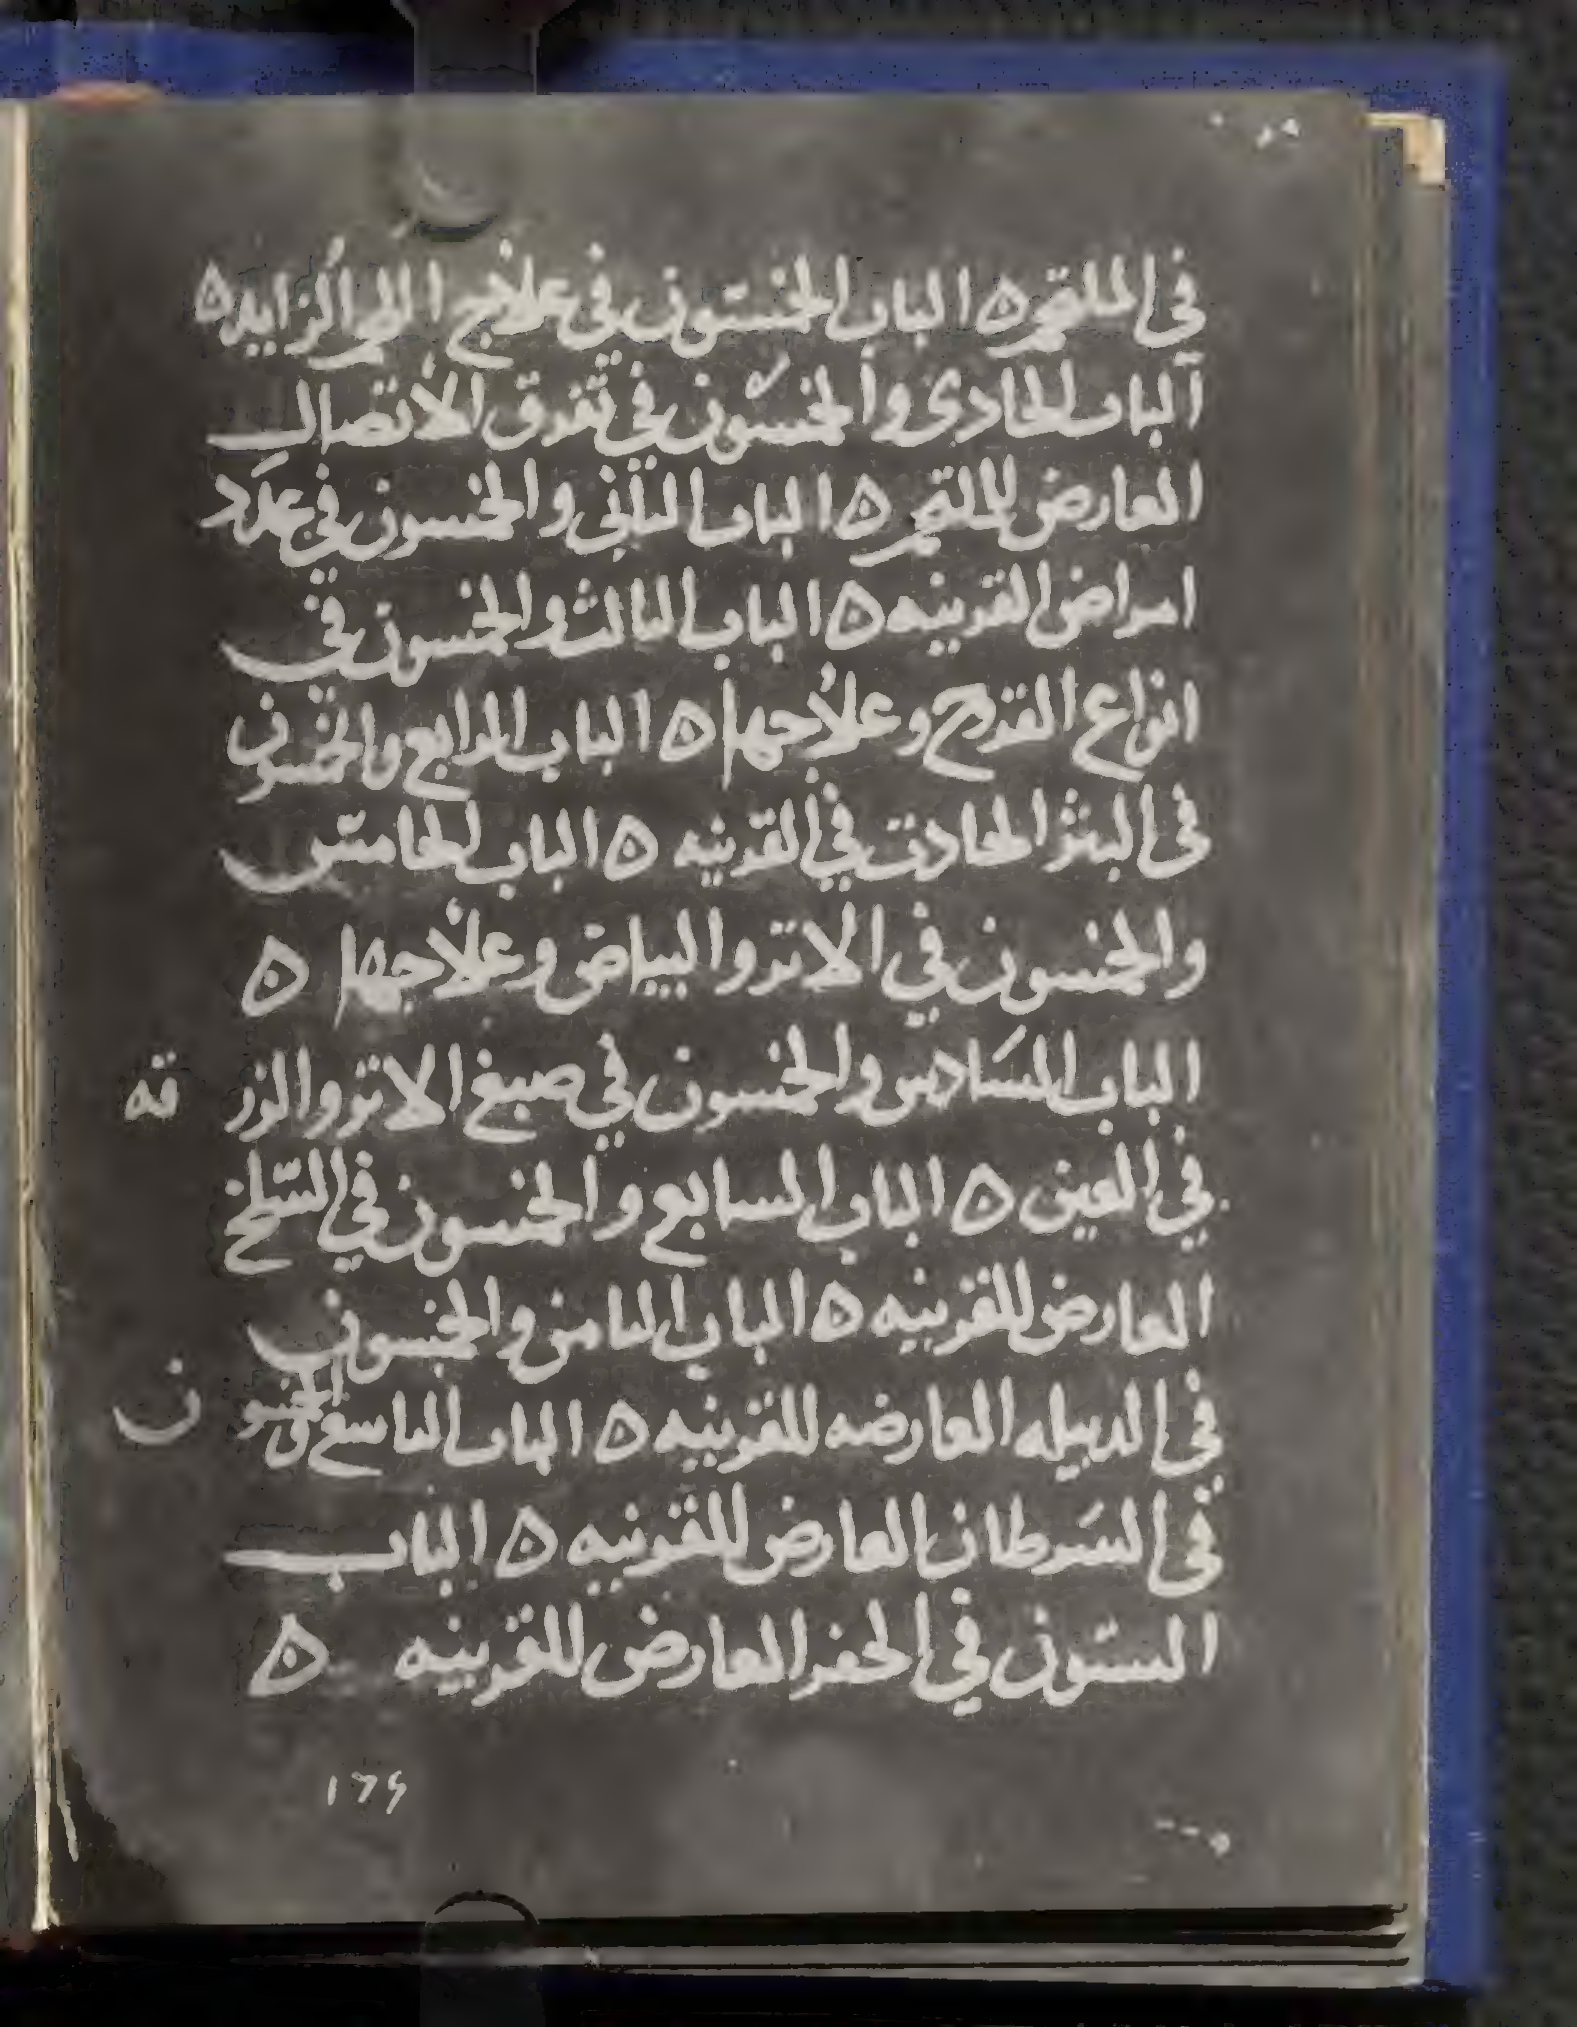 في الملتحم ه الباب الخمسون في علاج اللحم الزايد ه
الباب الحادى والخمسون في تفرق الاتصال
العارض للملتحم ه الباب الثاني والخمسون في عدد
امراض القرنيه ه الباب الثالث والخمسون في
انواع القروح وعلاجها ه الباب الرابع والخمسون
في البثر الحادث في القرنيه ه الباب الخامس
والخمسون في الاثر والبياض وعلاجها ه
الباب السادس والخمسون في صبغ الاثر والزرقه
في العين ه الباب السابع والخمسون في السلخ
العارض للقرنيه ه الباب الثامن والخمسون
في الدبيله العارضه للقرنيه ه الباب التاسع والخمسون
في السرطان العارض للقرنيه ه الباب
الستون في الحفر العارض للقرنيه ه